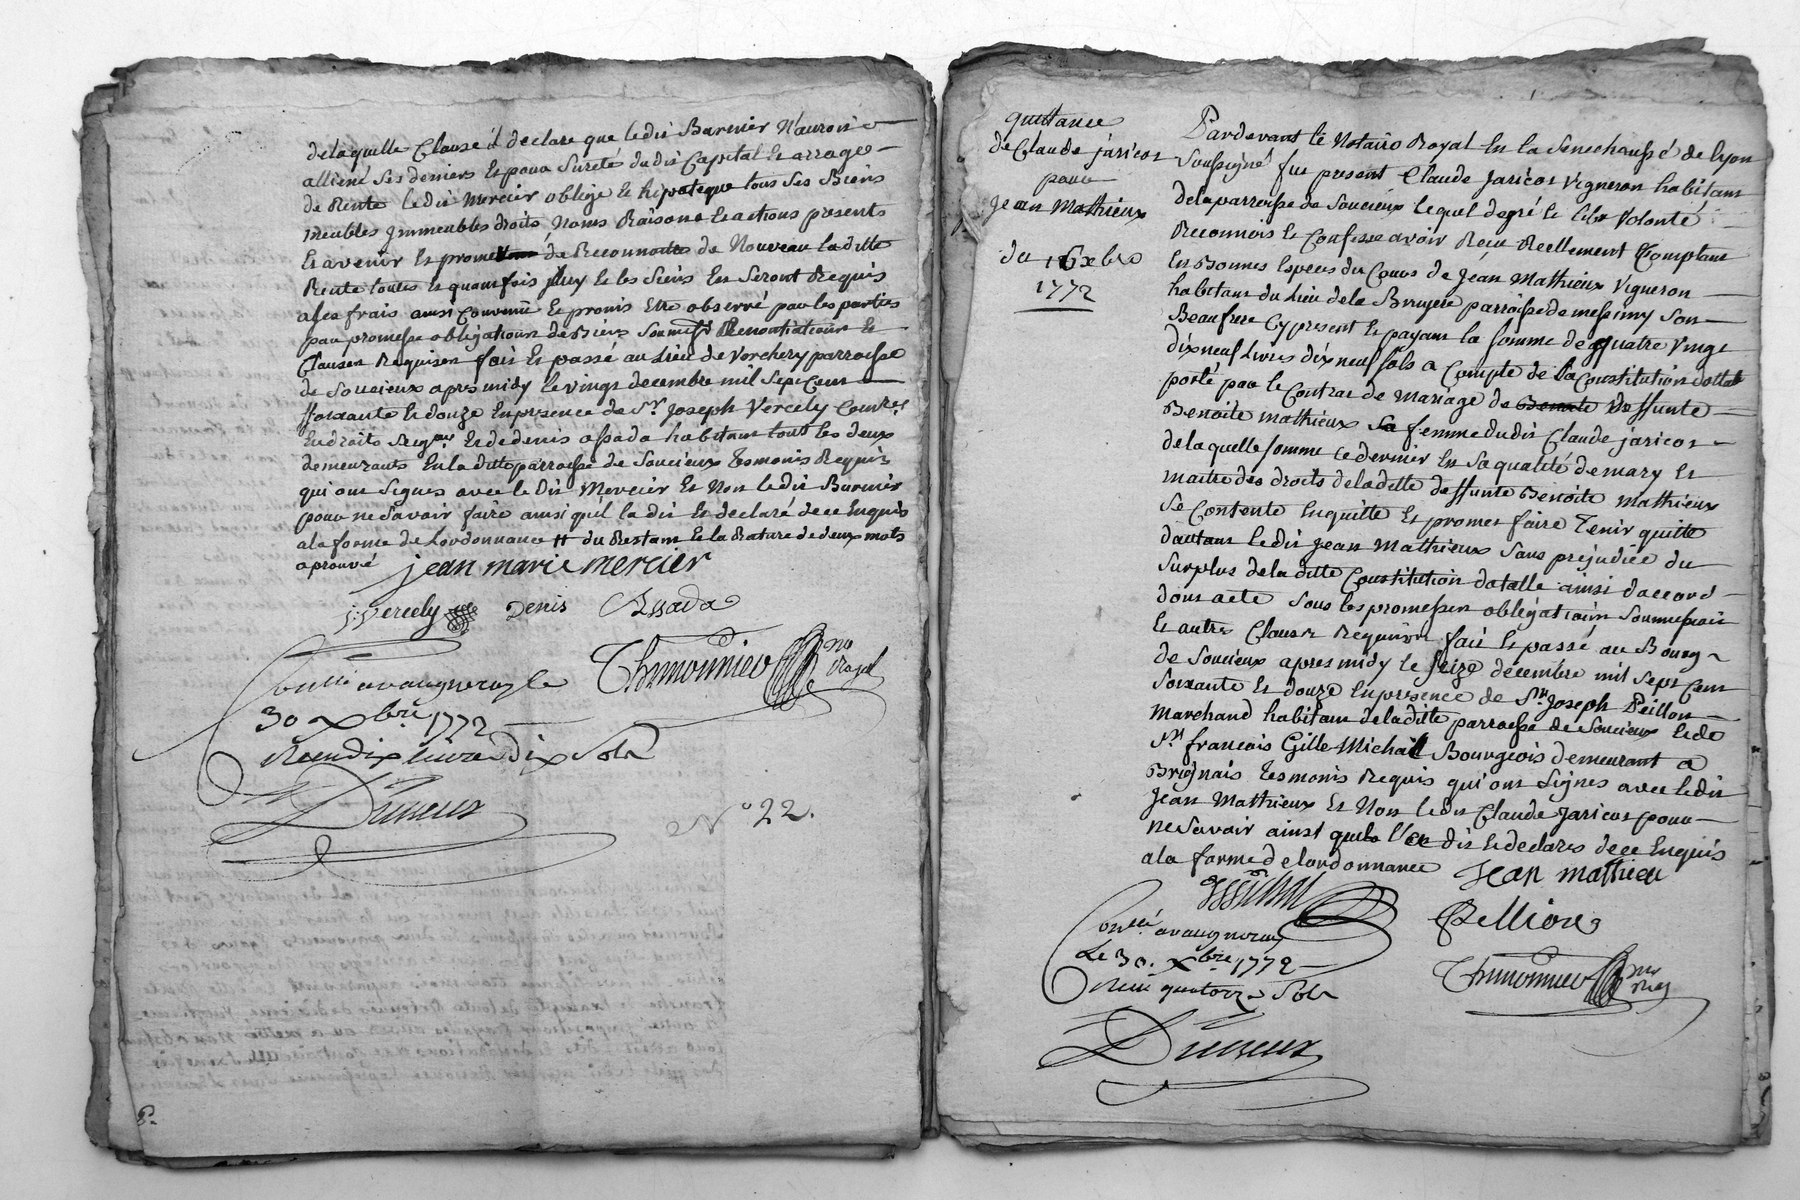 de laquelle Clause il declare que ledit Barnier N'auroit
alliené ses deniers Et pour Sureté dudit Capital Et arrage
de Rente ledit Mercier oblige Et hipoteque tous Ses Biens
meubles immeubles droits Noms Raisons Et actions presents
Et avenir Et promet de Reconnoitre de Nouveau laditte
Rente toutes Et quantes fois luy Et les Siens En Seront Requis
a ses frais ainsi Convenu Et promis Etre observé par les parties
par promesse obligations de Biens Soumissõ Renontiations Et
Clauses Requises fait Et passé au Lieu de Verchery parroisse
de Soucieux apres midy le vingt decembre mil Sept Cent
Soixante Et douze En presence de Sr. Joseph Vercely
En droits Et de denis assada habitant tous les deux
demeurants En la ditte parroisse de Soucieux Temonis Requis
qui ont Signés avec le dit Mercier Et Non ledit Barnier
pour ne Savoir faire ainsi qu'il la dit Et declaré de ce Enquis
a la forme de Lordonnance # du Restant Et la Rature de deux mots
aprouvé
jean marie mercier
j: Vercely Denis Assada
Thimonnier no Royal
Conllé a vaugneray le
30 Xbre 1772
Receu dix livres dix Sols
N° 22.
quittance
de Claude jaricot
pour
jean Mathieux
du 16 Xbre
1772
Pardevant le Notaire Royal En la Senechaussé de Lyon
Soussigné fut present Claude Jaricot Vigneron habitant
de la parroisse de Soucieux lequel de gré Et libre Volonté
Reconnoit Et Confesse avoir Reçu Reellement Comptant
En Bonnes Especes du Cours de Jean Mathieux Vigneron
habitant du Lieu de la Bruyere parroisse de messimy Son
Beaufrere Cy present Et payant la Somme de quatre Vingt
dixneuf Livres dixneuf Sols a Compte de la Constitution dottale
porté par le Contrat de mariage de Benoite deffunte
Benoite Mathieux Sa femme dudit Claude jaricot
de laquelle Somme ce dernier En Sa qualité de mary Et
maitre des droits de ladette deffunte Benoite Mathieux
Se Contente En quitte Et promet faire Tenir quitte
d'autant ledit Jean Mathieux Sans prejudice du
Surplus de la ditte Constitution dotalle ainsi d'accord
dont acte Sous les promesses obligations Soumission
Et autres Clauses Requises fait Et passé au Bourg
de Soucieux apres midy le Seize decembre mil Sept Cent
Soixante Et douze En presence de Sr. Joseph Peillon
Marchand habitant de la ditte parroisse de Soucieux Et de
Sr. francois Gille Michail Bourgeois demeurant a
Brignais Temonis Requis qui ont Signés avec ledit
Jean Mathieux Et Non ledit Claude Jaricot pour
ne Savoir ainsi quil l'a dit Et declaré de ce Enquis
a la forme de lordonnance
Jean mathieu
Pellion
Thimonnier no Roy
Conllé a vaugneray
Le 30. Xbre 1772
Receu quatorze Sols